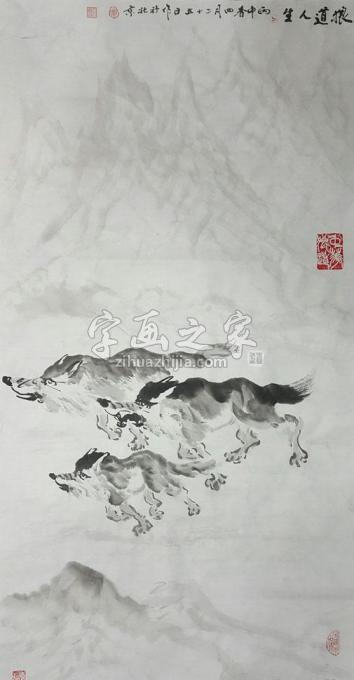 狼道人生
丙申春四月二十五日作於北京
字画之家
zihuazhijia.com